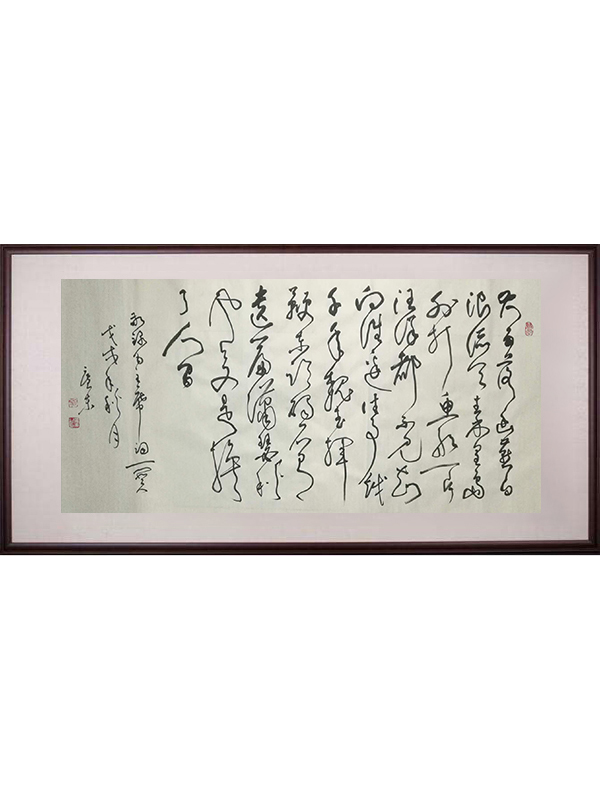 大雨落幽燕白
浪滔天秦皇岛
外打鱼船一片
汪洋都不见知
向谁边往事越
千年魏武挥
鞭东临碣石有
遗篇萧瑟秋风
今又是换
了人间
主席词
戊戌年秋月